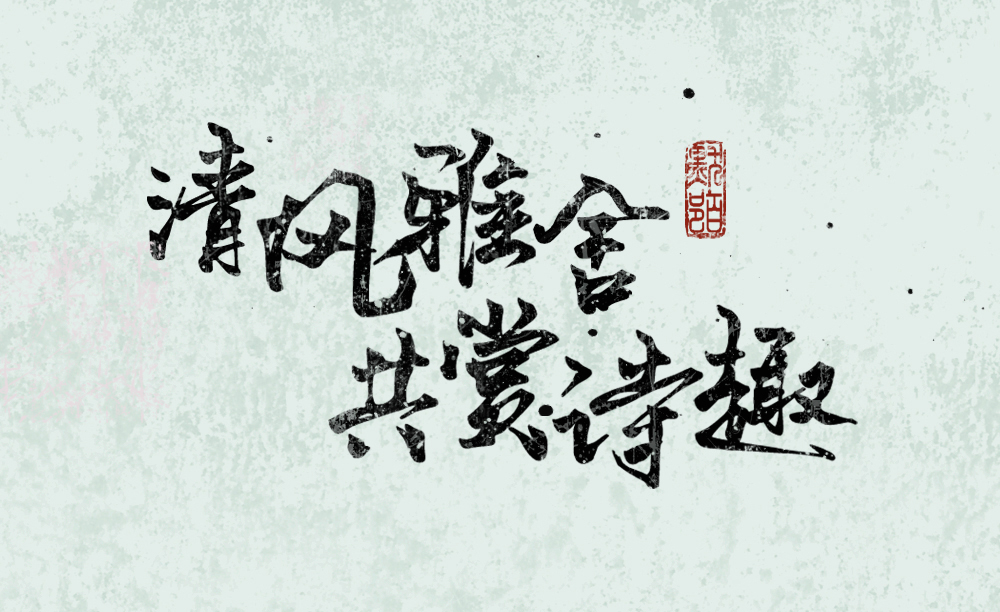 清风雅舍
共赏诗趣